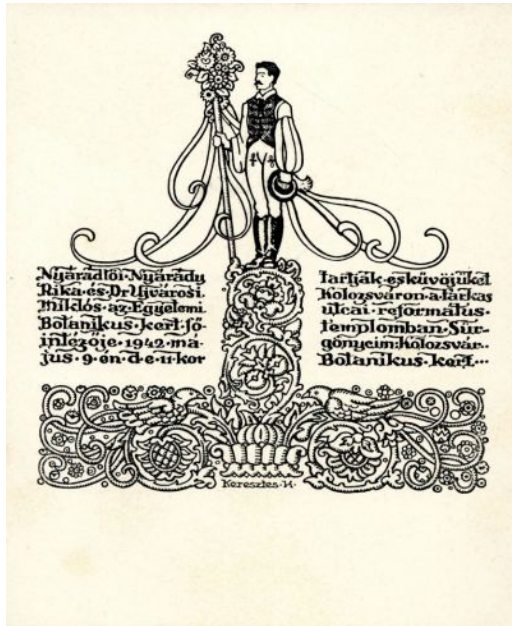 Nyárádtői·Nyárády
Rika·és·Dr·Ujvárosi·
Miklós·az·Egyetemi·
Botanikus·kert·fő-
intézője·1942·ma-
jus·9·én·d·e·11·kor
tartják·esküvőjüket
Kolozsváron·a·farkas
utcai·református·
templomban·Sür-
gönyeim:Kolozsvár·
Botanikus·kert···
Keresztes·H·